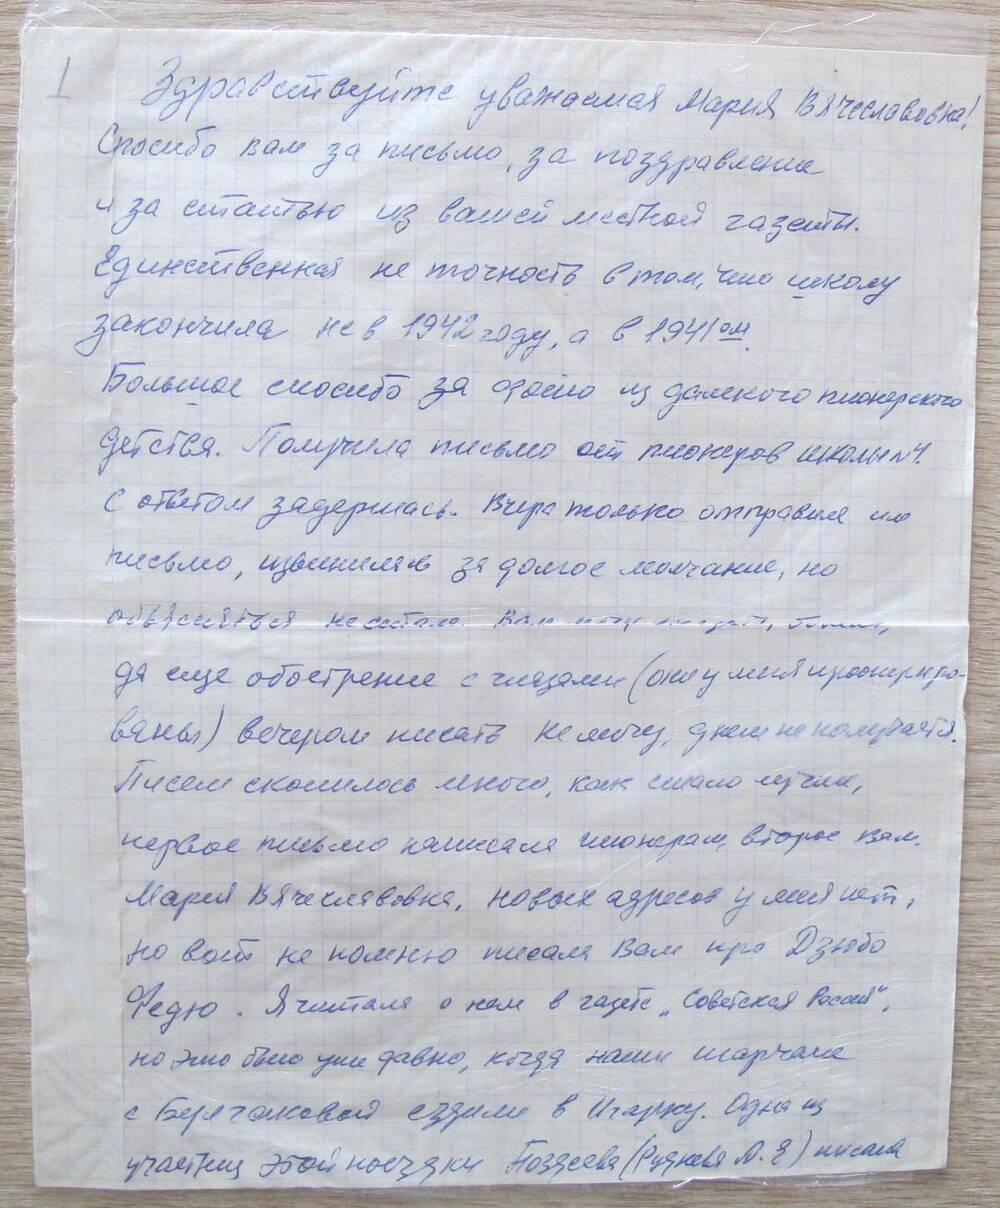 1
Здравствуйте уважаемая Мария Вячеславовна!
Спосибо вам за письмо, за поздравление
и за статью из вашей местной газеты.
Единственная не точность в том, что школу
закончила не в 1942 году, а в 1941ом.
Большое спосибо за фото из далекого пионерского
детства. Получила письмо от пионеров школы №4.
С ответом задержась. Вчера только отправила им
письмо, извинилась за долгое молчание, но
объясняться не стала. Вам могу
да еще обострение с глазами (они у меня проопериро-
ваны) вечером писать не могу, днем не получается.
Писем скопилось много, как стало лучше,
первое письмо написала пионерам, второе вам.
Мария Вячеславовна, новых адресов у меня нет,
но вот не помню писала Вам про Дзюбо
Федю. Я читала о нем в газете „Советская Россия",
но это было уже давно, когда наши игарчане
с ездили в Игарку. Одна из
участниц этой поездки писала